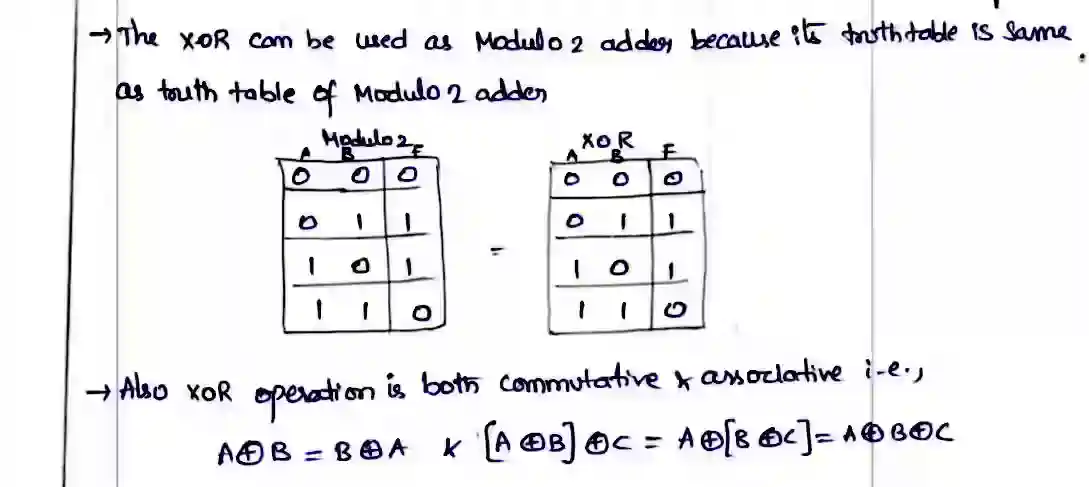 → The XOR can be used as Modulo 2 adder, because its truth table is same
as truth table of Modulo 2 adder
Modulo 2 XOR
A B F A B F
0 0 0 0 0 0
0 1 1 0 1 1
=
1 0 1 1 0 1
1 1 0 1 1 0
→ Also XOR operation is both commutative & associative i.e.,
A⊕B = B⊕A & [A⊕B]⊕C = A⊕[B⊕C] = A⊕B⊕C